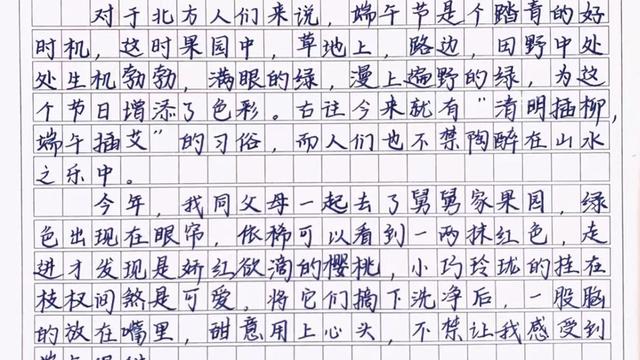 对于北方人们来说，端午节是个踏青的好
时机，这时果园中，草地上，路边，田野中处
处生机勃勃，满眼的绿，漫上遍野的绿，为这
个节日增添了色彩。古往今来就有“清明插柳，
端午插艾”的习俗，而人们也不禁陶醉在山水
之乐中。
今年，我同父母一起去了舅舅家果园，绿
色出现在眼帘，依稀可以看到一两抹红色，走
进才发现是娇红欲滴的樱桃，小巧玲珑的挂在
枝杈间煞是可爱。将它们摘下洗净后，一股脑
的放在嘴里，甜意用上心头，不禁让我感受到